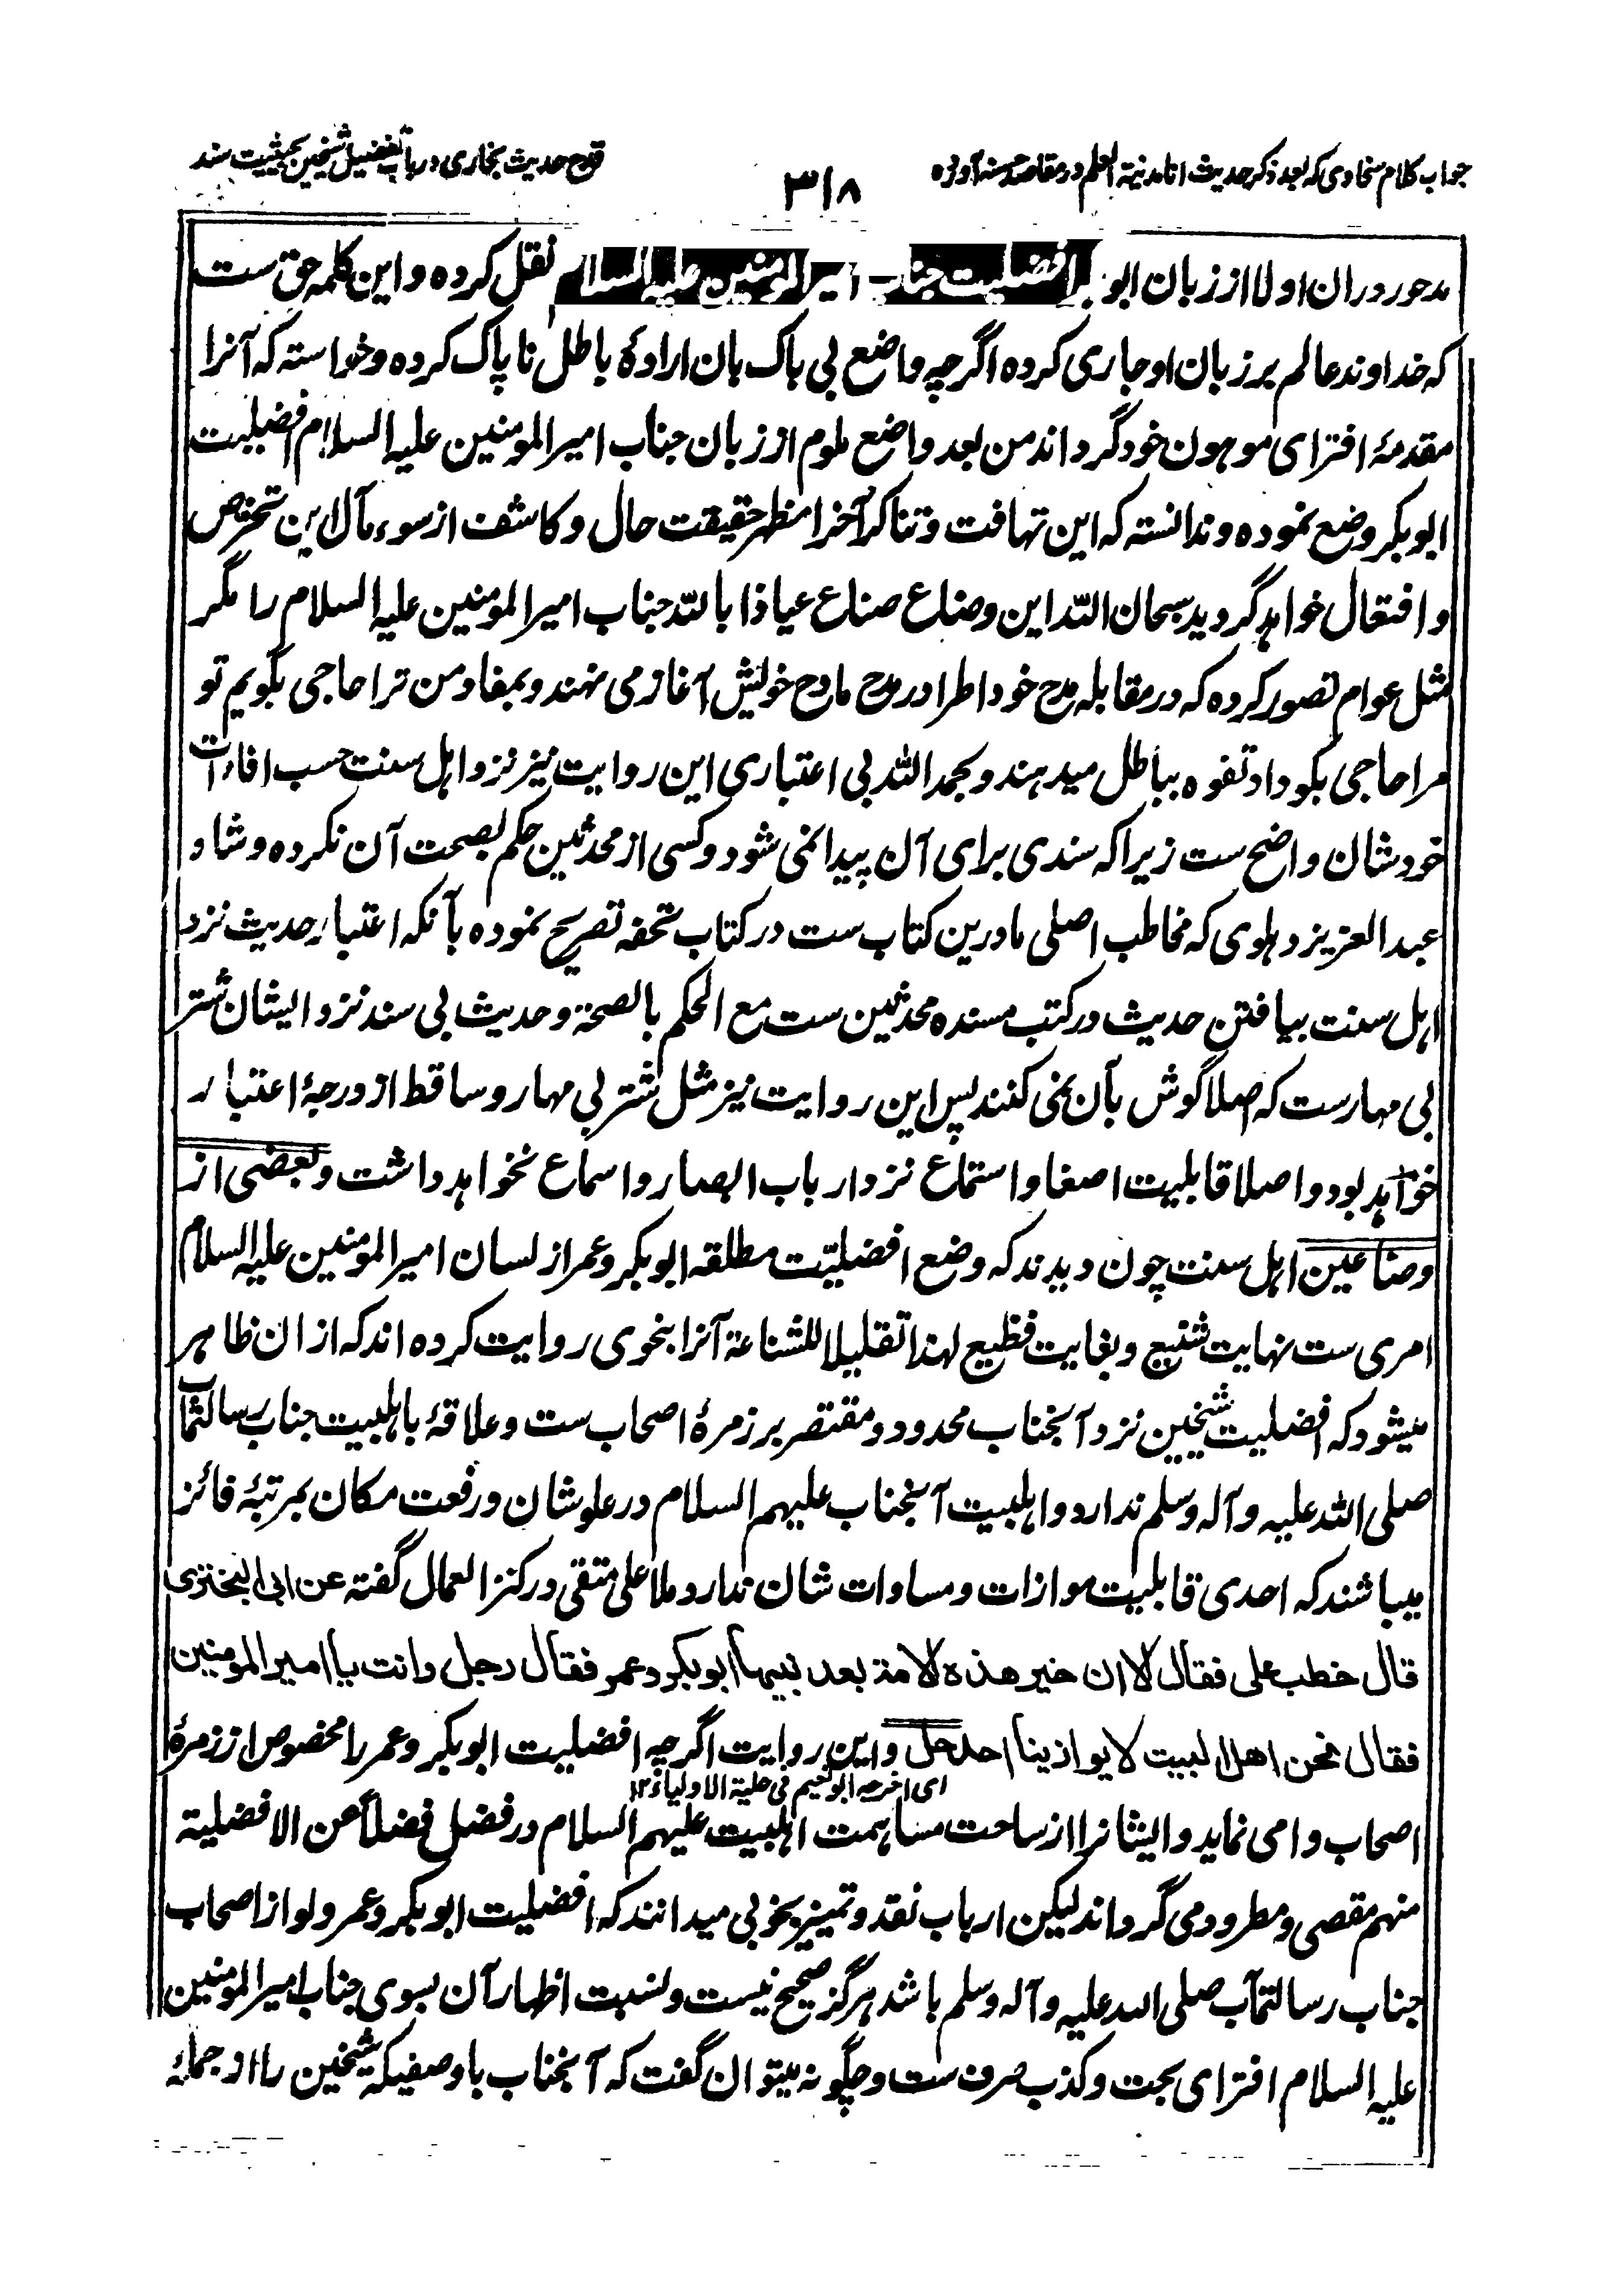 جواب کلام سخاوی که بعد ذکر حدیث انا مدینة العلم در مقاصد حسنه آورده
۳۱۸
قدح حدیث بخاری در باب تفضیل شیخین بحیثیت سند
دران اولا از زبان ابو بر افضلیت جناب امیر المومنین علیه السلام نقل کرده و این کلمه حق ست
که خداوند عالم بر زبان او جاری کرده اگرچه واضع بی باک بان ارادهٔ باطل ناپاک کرده و خواسته که آنرا
مقدمهٔ افترای موهون خود گرداند من بعد واضع ملوم از زبان جناب امیر المومنین علیه السلام افضلیت
ابو بکر وضع نموده و ندانسته که این تهافت و تناکر آخرا مظهر حقیقت حال و کاشف از سوء مآل این تخرص
و افتعال خواهد گردید سبحان الله این وضاع صناع عیاذا بالله جناب امیر المومنین علیه السلام را مگر
مثل عوام تصور کرده که در مقابله مدح خود اطرا در مدح مادح خویش آغاز می نهند و بمفاد من ترا حاجی بگویم تو
مرا حاجی بگو داد تفوه بباطل میدهند و بحمد الله بی اعتباری این روایت نیز نزد اهل سنت حسب افادات
خودشان واضح ست زیرا که سندی برای آن پیدا نمی شود و کسی از محدثین حکم بصحت آن نکرده و شاه
عبد العزیز دهلوی که مخاطب اصلی ما درین کتاب ست در کتاب تحفه تصریح نموده بآنکه اعتبار حدیث نزد
اهل سنت بیافتن حدیث در کتب مسنده محدثین ست مع الحکم بالصحة و حدیث بی سند نزد ایشان شتر
بی مهارست که اصلا گوش بآن نمی کنند پس این روایت نیز مثل شتر بی مهار و ساقط از درجهٔ اعتبار
خواهد بود و اصلا قابلیت اصغا و استماع نزد ارباب ابصار و اسماع نخواهد داشت و بعضی از
وضاعین اهل سنت چون دیدند که وضع افضلیّت مطلقه ابو بکر و عمر از لسان امیر المومنین علیه السلام
امری ست نهایت شنیع و بغایت فظیع لهذا تقلیلا للشناعة آنرا بنحوی روایت کرده اند که ازان ظاهر
میشود که افضلیت شیخین نزد آنجناب محدود و مقتصر بر زمرهٔ اصحاب ست و علاقهٔ باهلبیت جناب رسالتمآب
صلی الله علیه و آله و سلم ندارد و اهلبیت آنجناب علیهم السلام در علو شان و رفعت مکان بمرتبهٔ فائز
میباشند که احدی قابلیت موازات و مساوات شان ندارد ملا علی متقی در کنز العمال گفته عن ابی البختری
قال خطب علی فقال الا ان خیر هذه الامة بعد نبیها ابو بکر و عمر فقال رجل و انت یا امیر المومنین
فقال نحن اهل البیت لا یوازینا احد حل و این روایت اگرچه افضلیت ابو بکر و عمر را مخصوص از زمرهٔ
ای اخرجه ابو نعیم فی حلیة الاولیاء ۱۲
اصحاب وا می نماید و ایشانرا از ساحت مساهمت اهلبیت علیهم السلام در فضل فضلاً عن الافضلیة
منهم مقصی و مطرود می گرداند لیکن ارباب نقد و تمییز بخوبی میدانند که افضلیت ابو بکر و عمر ولو از اصحاب
جناب رسالتمآب صلی الله علیه و آله و سلم باشد هرگز صحیح نیست و نسبت اظهار آن بسوی جناب امیر المومنین
علیه السلام افترای بحت و کذب صرف ست و چگونه میتوان گفت که آنجناب با وصفیکه شیخین را از جملهٔ